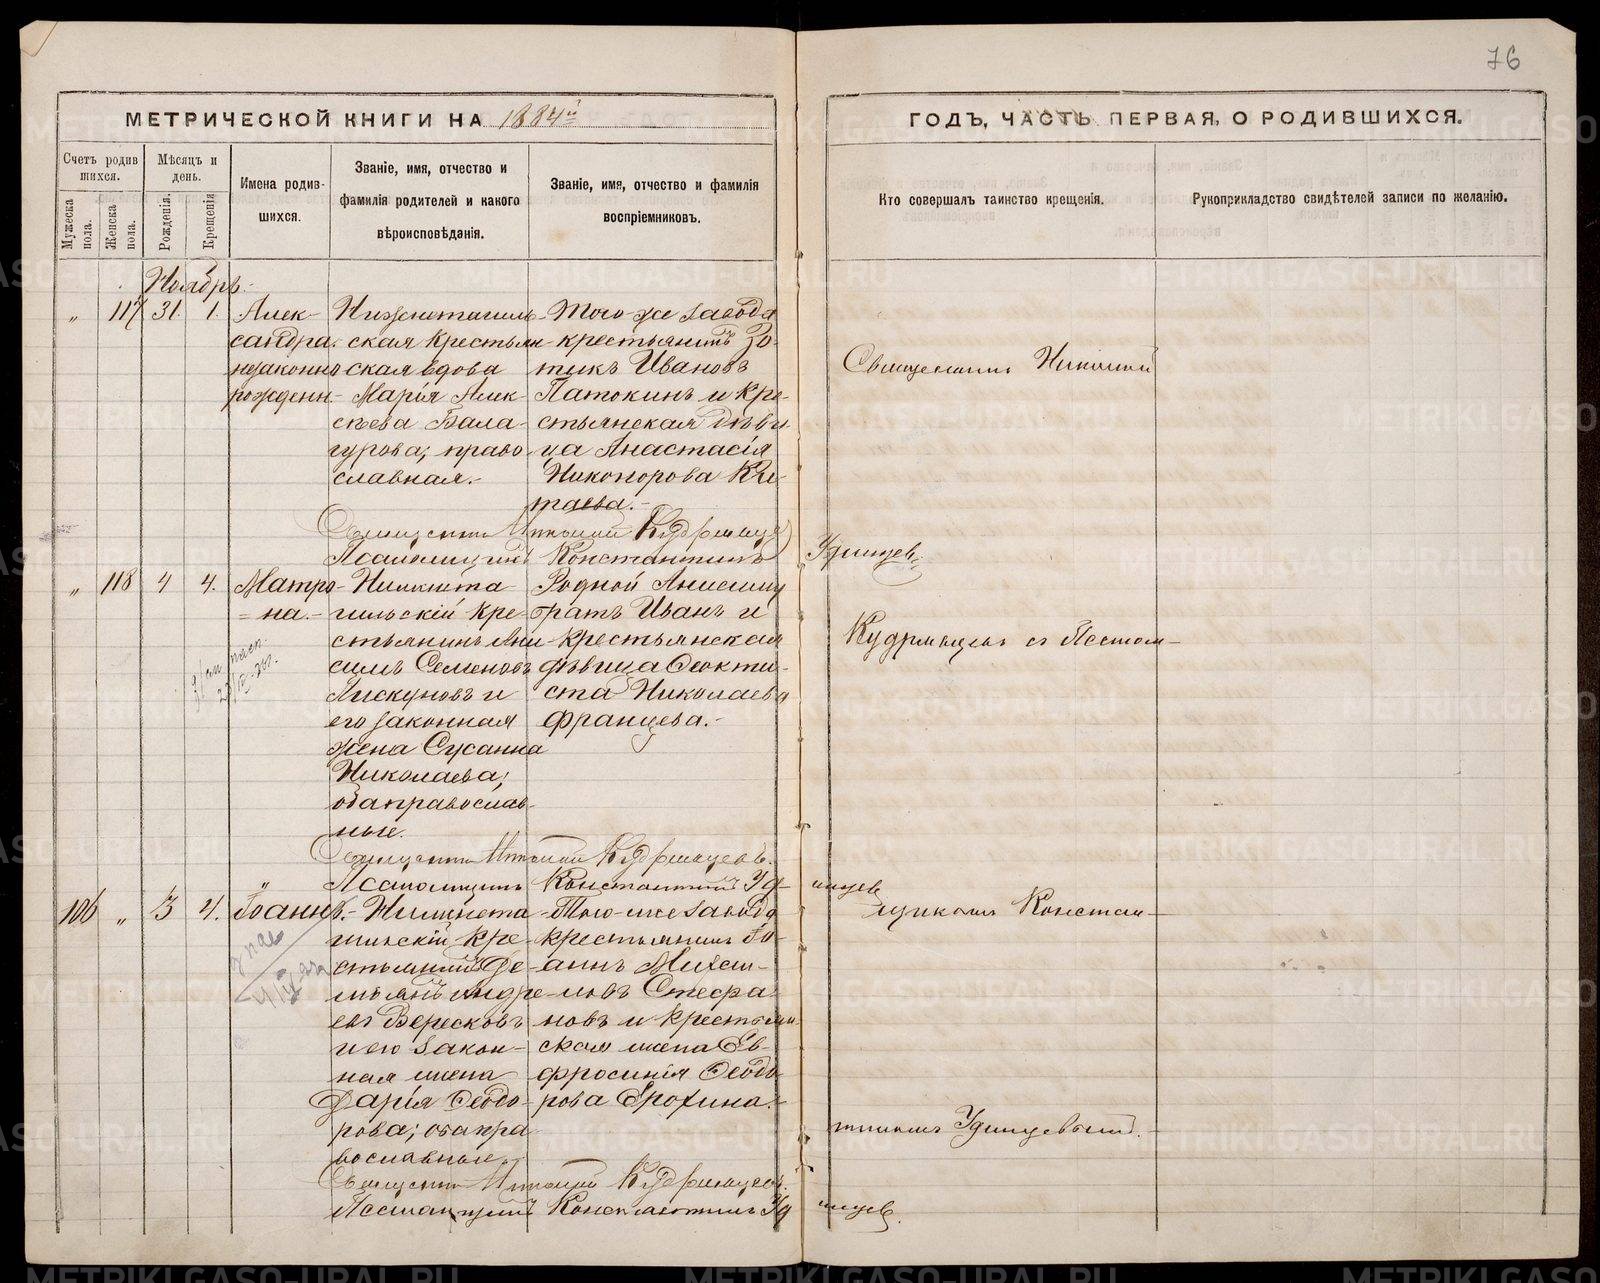 76
МЕТРИЧЕСКОЙ КНИГИ НА 1884й
ГОДЪ, ЧАСТЬ ПЕРВАЯ, О РОДИВШИХСЯ.
Счетъ родив
шихся.
Мужеска
пола.
Женска
пола.
Мѣсяцъ и
день.
Рожденія.
Крещенія
Имена родив-
шихся.
Званіе, имя, отчество и
фамилія родителей и какого
вѣроисповѣданія.
Званіе, имя, отчество и фамилія
воспріемниковъ.
Кто совершалъ таинство крещенія.
Рукоприкладство свидѣтелей записи по желанію.
Ноябрь.
„ 117 31. 1.
Алек-
сандра.
незаконно
рожденн.
Нижнетагиль-
ская крестьян-
ская вдова
Марія Алек-
сѣева Бала-
гурова; право-
славная.
Того же завода
крестьянинъ Зо-
тикъ Ивановъ
Патокинъ и кре-
стьянская дѣви-
ца Анастасія
Никонорова Ки-
таева.
Священникъ Николай
Священникъ Николай Кудрявцев
Псаломщикъ Константинъ Удинцев.
„ 118 4 4.
Матро-
на.
Нижнета-
гильскій кре-
стьянинъ Ани-
симъ Семеновъ
Пискуновъ и
его законная
жена Сусанна
Николаева;
оба православ-
ные.
Родной Анисиму
братъ Иванъ и
крестьянская
дѣвица Ѳеокти-
ста Николаева
Францева.
Кудрявцевъ съ Псалом-
Священникъ Николай Кудрявцевъ.
Псаломщикъ Константинъ Удинцев
106 „ 3 4.
Іоаннъ.
Нижнета-
гильскій кре-
стьянинъ Де-
мьянъ Андре-
евъ Вересковъ
и его закон-
ная жена
Дарія Ѳеодо-
рова; оба пра-
вославные.
Того же завода
крестьянинъ Іо-
аннъ Михаи-
ловъ Стефа-
новъ и крестьян-
ская жена Ев-
фросинія Ѳеодо-
рова Ерохина.
щикомъ Констан-
тиномъ Удинцевымъ.
Священникъ Николай Кудрявцев.
Псаломщикъ Константинъ Удинцев.